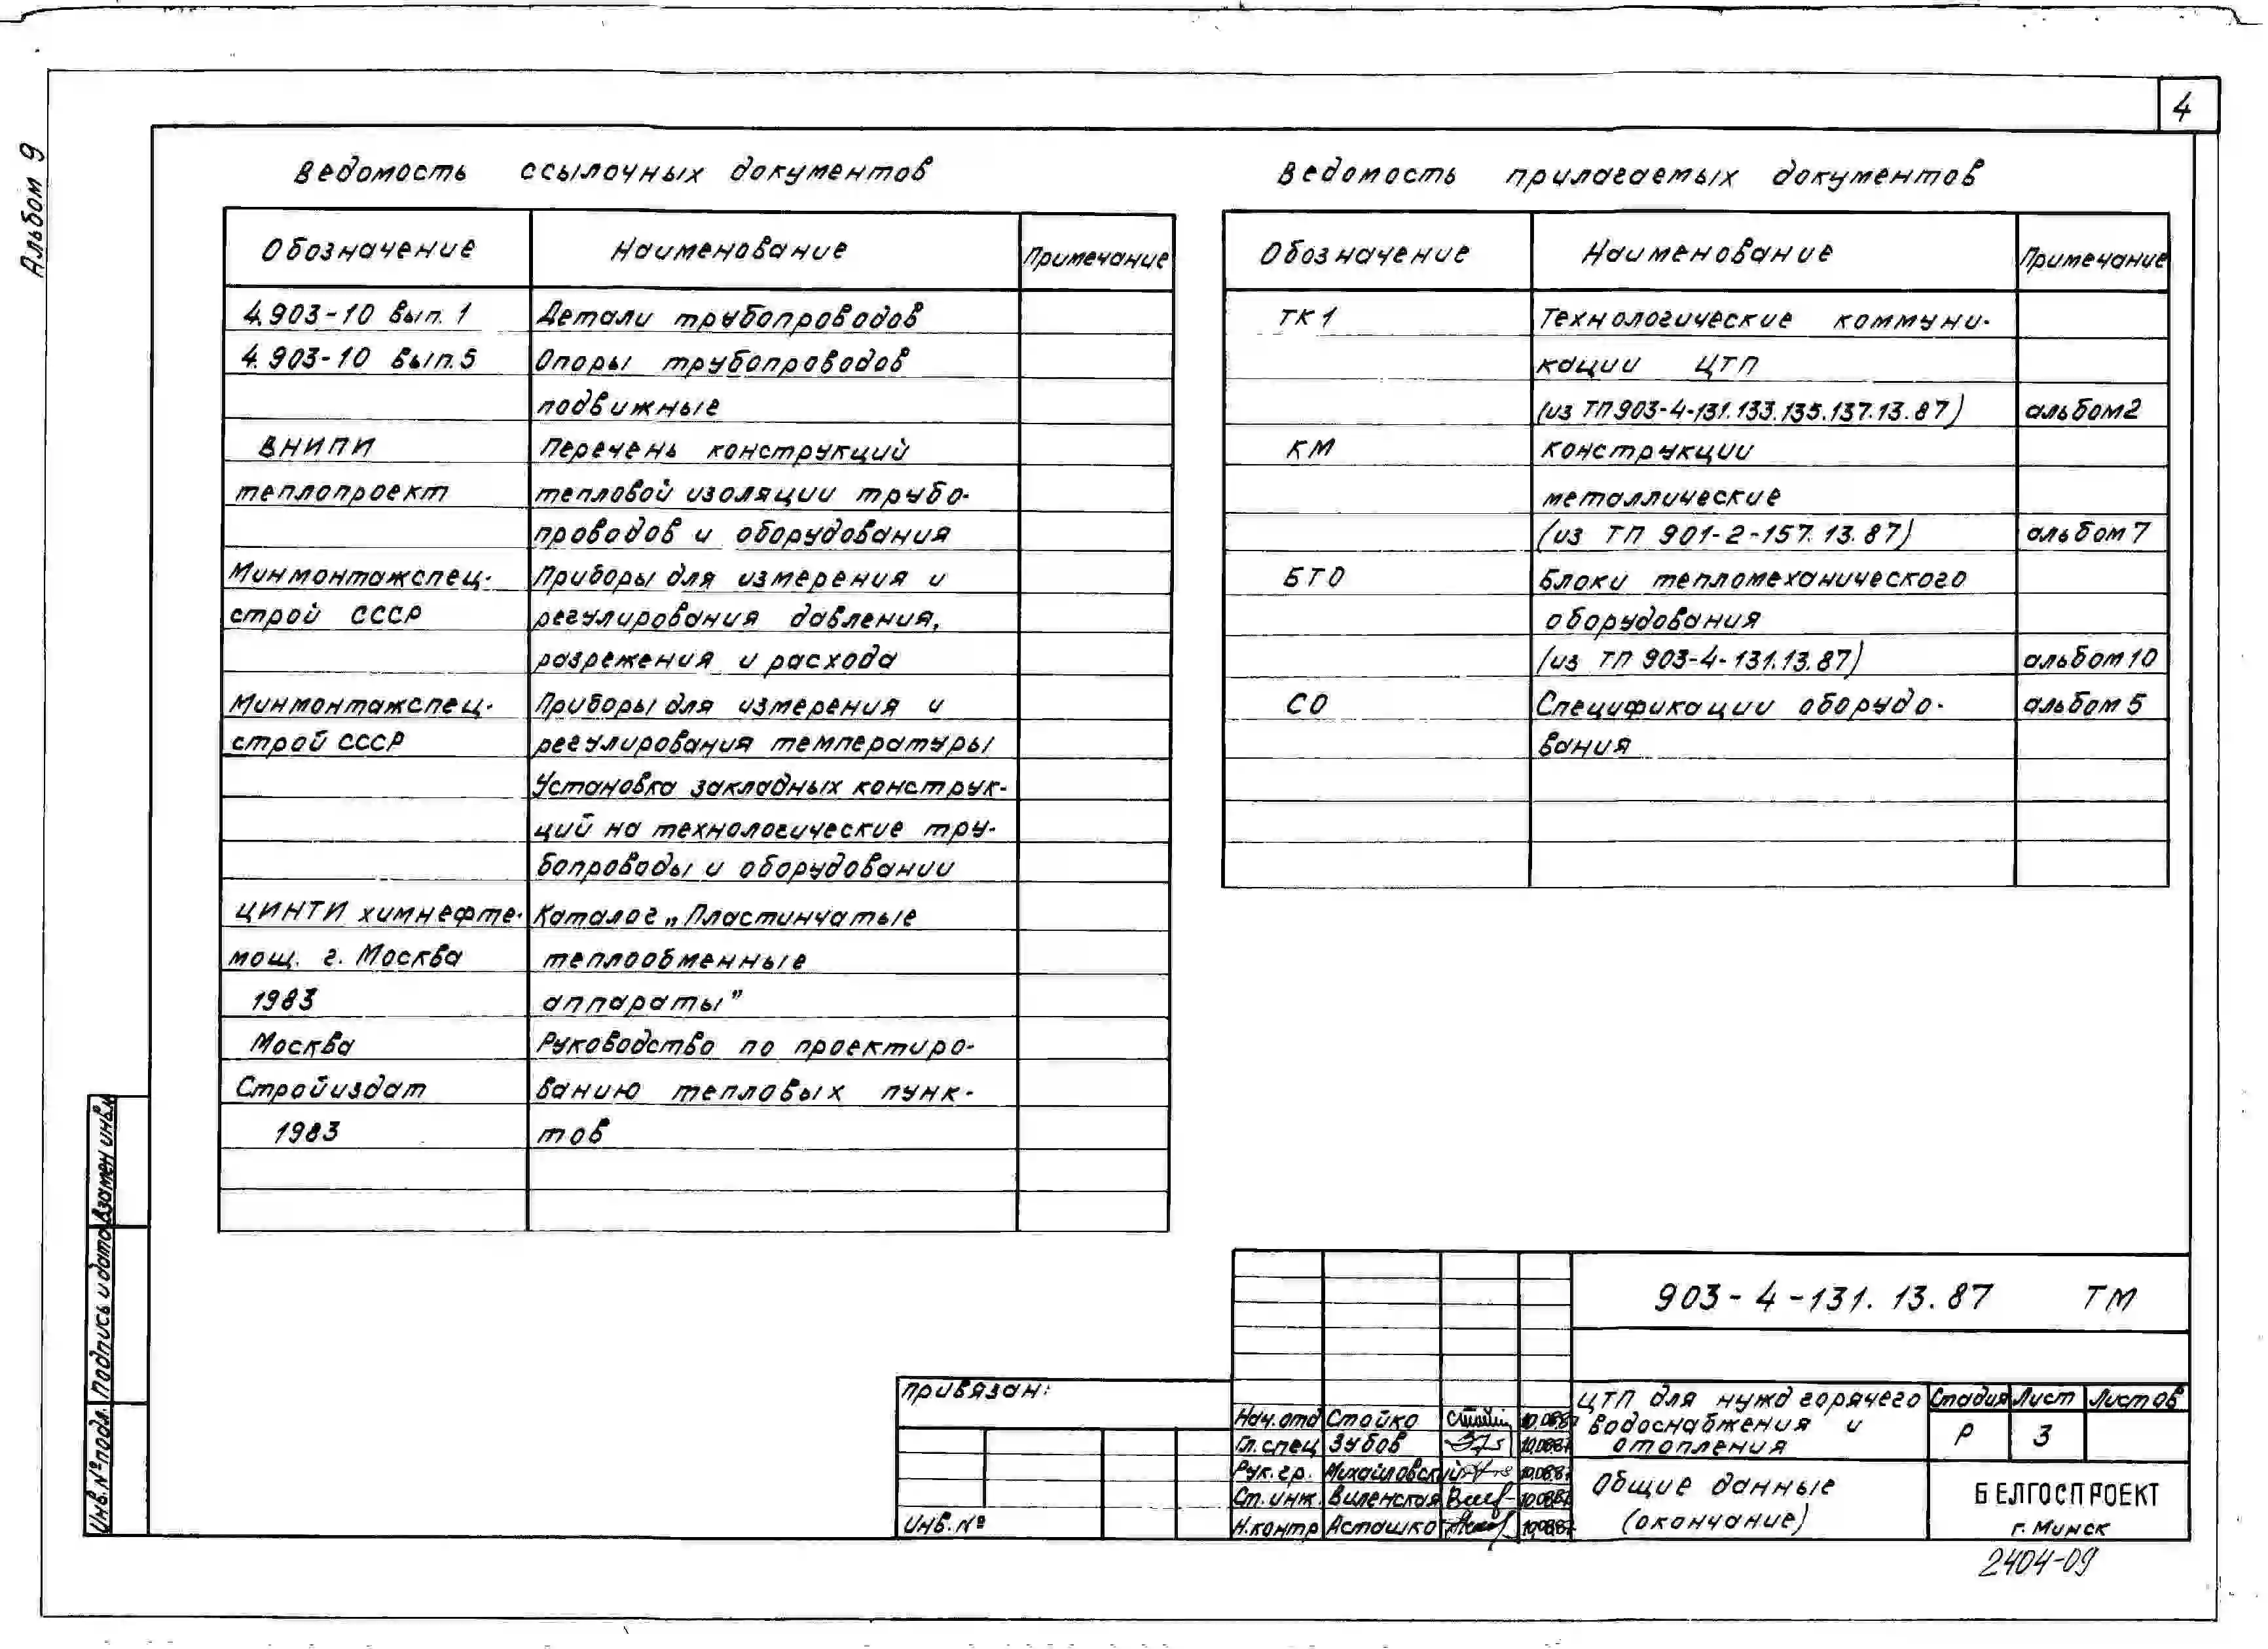 4
Альбом 9
Ведомость ссылочных документов
Обозначение Наименование Примечание
4.903-10 вып. 1 Детали трубопроводов
4.903-10 вып.5 Опоры трубопроводов
подвижные
ВНИПИ Перечень конструкций
теплопроект тепловой изоляции трубо-
проводов и оборудования
Минмонтажспец- Приборы для измерения и
строй СССР регулирования давления,
разрежения и расхода
Минмонтажспец- Приборы для измерения и
строй СССР регулирования температуры
Установка закладных конструк-
ций на технологические тру-
бопроводы и оборудовании
ЦИНТИ химнефте- Каталог „Пластинчатые
мощ. г. Москва теплообменные
1983 аппараты"
Москва Руководство по проектиро-
Стройиздат ванию тепловых пунк-
1983 тов
Ведомость прилагаемых документов
Обозначение Наименование Примечание
ТК1 Технологические коммуни-
кации ЦТП
(из ТП903-4-131.133.135.137.13.87) альбом2
КМ Конструкции
металлические
(из ТП 901-2-157.13.87) альбом 7
БТО Блоки тепломеханического
оборудования
(из ТП 903-4-131.13.87) альбом 10
СО Спецификации оборудо- альбом 5
вания
Взамен инв.№
Подпись и дата
Инв.№ подл.
Привязан:
Инв.№
903-4-131.13.87 ТМ
Нач.отд Стойко 10.08.87
Гл.спец Зубов 10.08.87
Рук.гр. Михайловский 10.08.87
Ст.инж. Виленская 10.08.87
Н.контр Асташко 10.08.87
ЦТП для нужд горячего
водоснабжения и
отопления
Стадия Лист Листов
Р 3
Общие данные
(окончание)
БЕЛГОСПРОЕКТ
г. Минск
2404-09